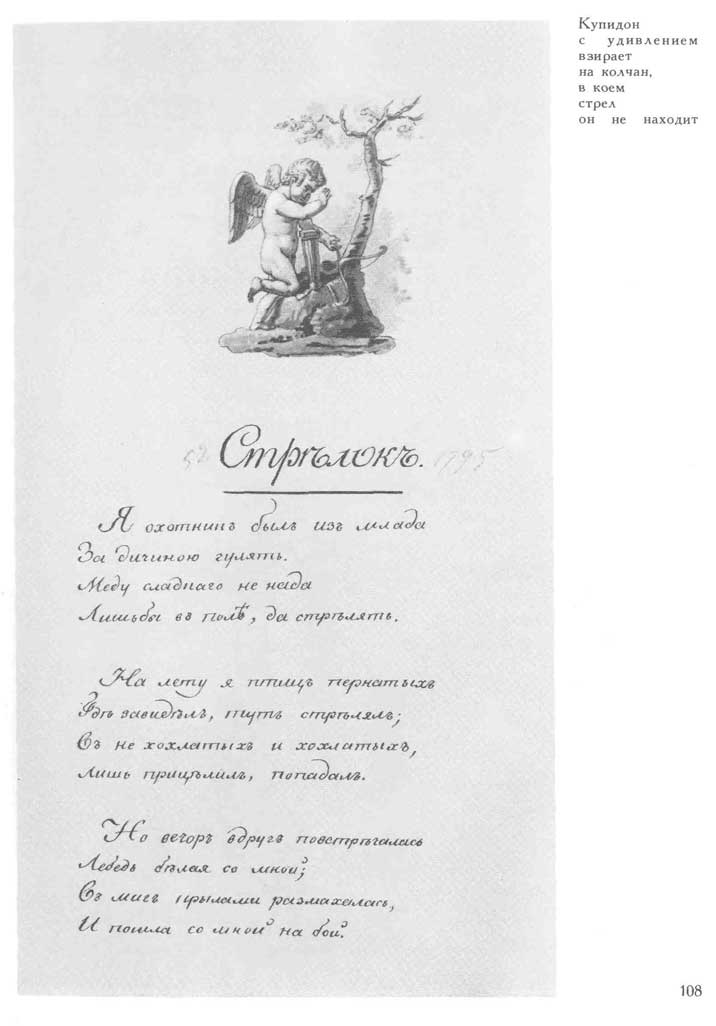 Купидон
с удивлением
взирает
на колчан,
в коем
стрел
он не находит
Стрѣлокъ. 1795
Я охотникъ былъ изъ млада
За дичиною гулять.
Меду сладкаго не нада
Лишьбы въ полѣ, да стрѣлять.
На лету я птицъ пернатыхъ
Гдѣ завидѣлъ, тутъ стрѣлялъ;
Въ не хохлатыхъ и хохлатыхъ,
Лишь прицѣлилъ, попадалъ.
Но вечоръ вдругъ повстрѣчалась
Лебедь бѣлая со мной;
Въ мигъ крылами размахалась,
И пошла со мной на бой.
108